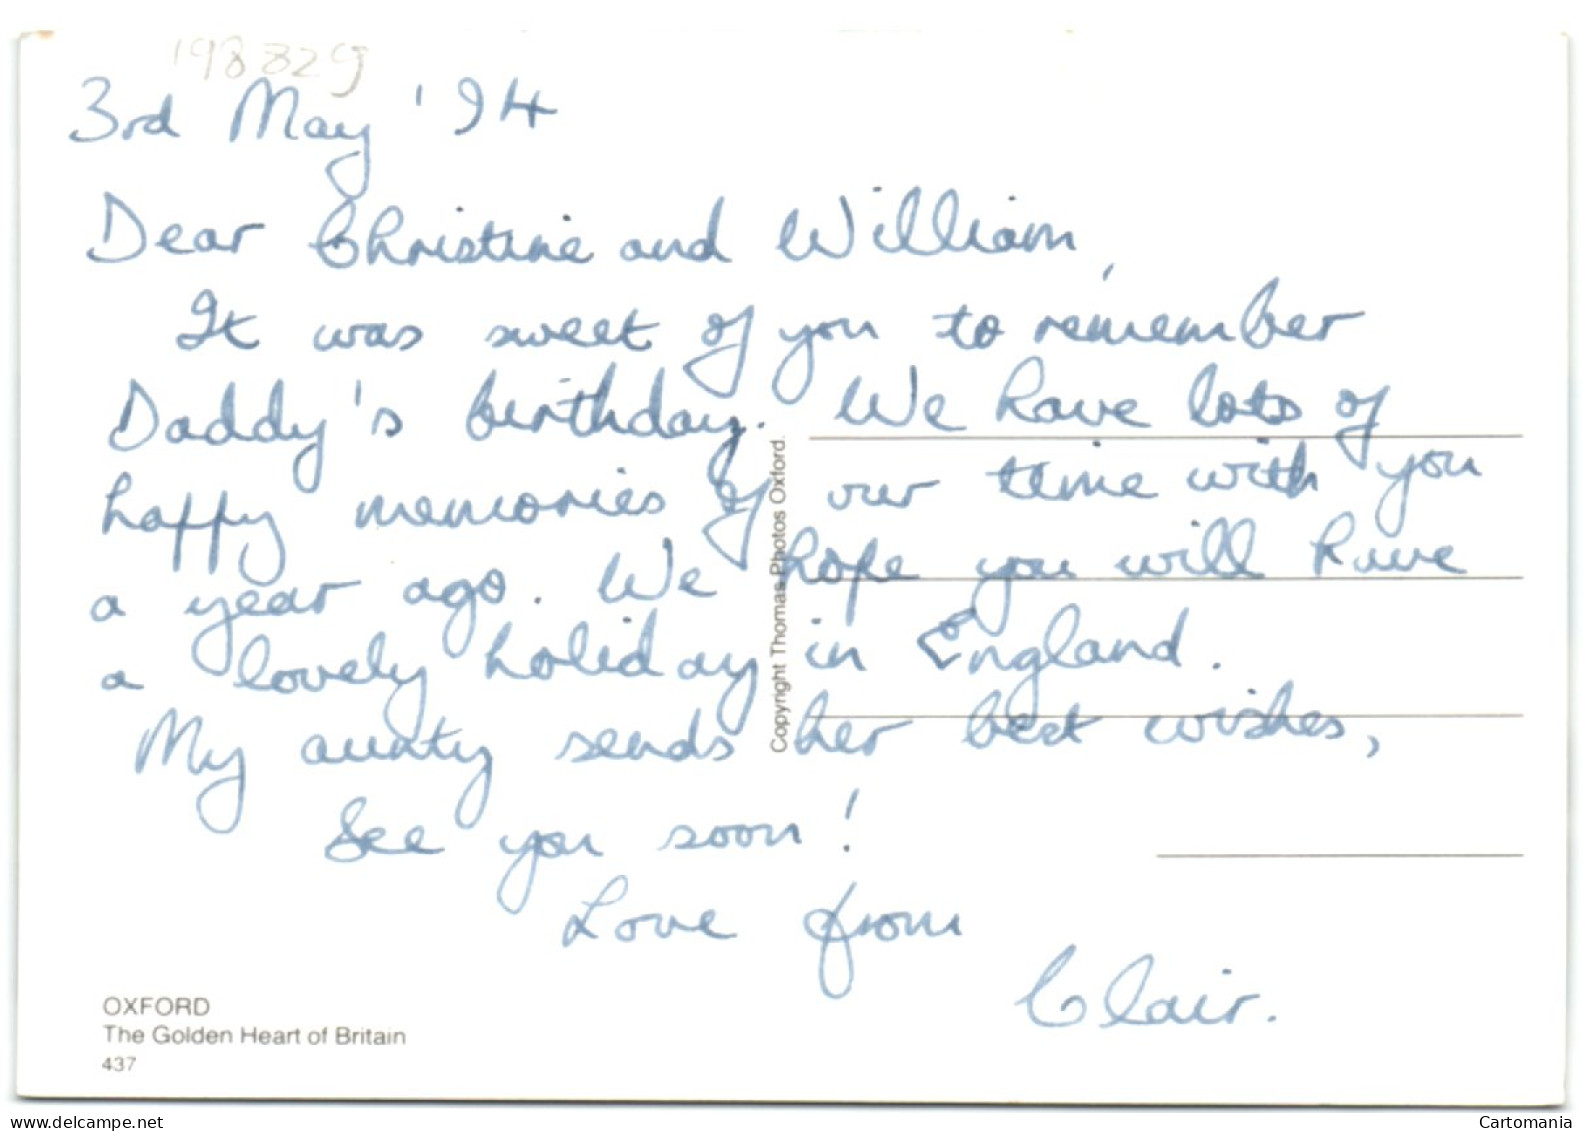 198829
3rd May '94
Dear Christine and William,
It was sweet of you to remember
Daddy's birthday. We have lots of
happy memories of our time with you
a year ago. We hope you will have
a lovely holiday in England.
My aunty sends her best wishes,
See you soon!
Love from
Clair.
Copyright Thomas Photos Oxford.
OXFORD
The Golden Heart of Britain
437
www.delcampe.net
Cartomania